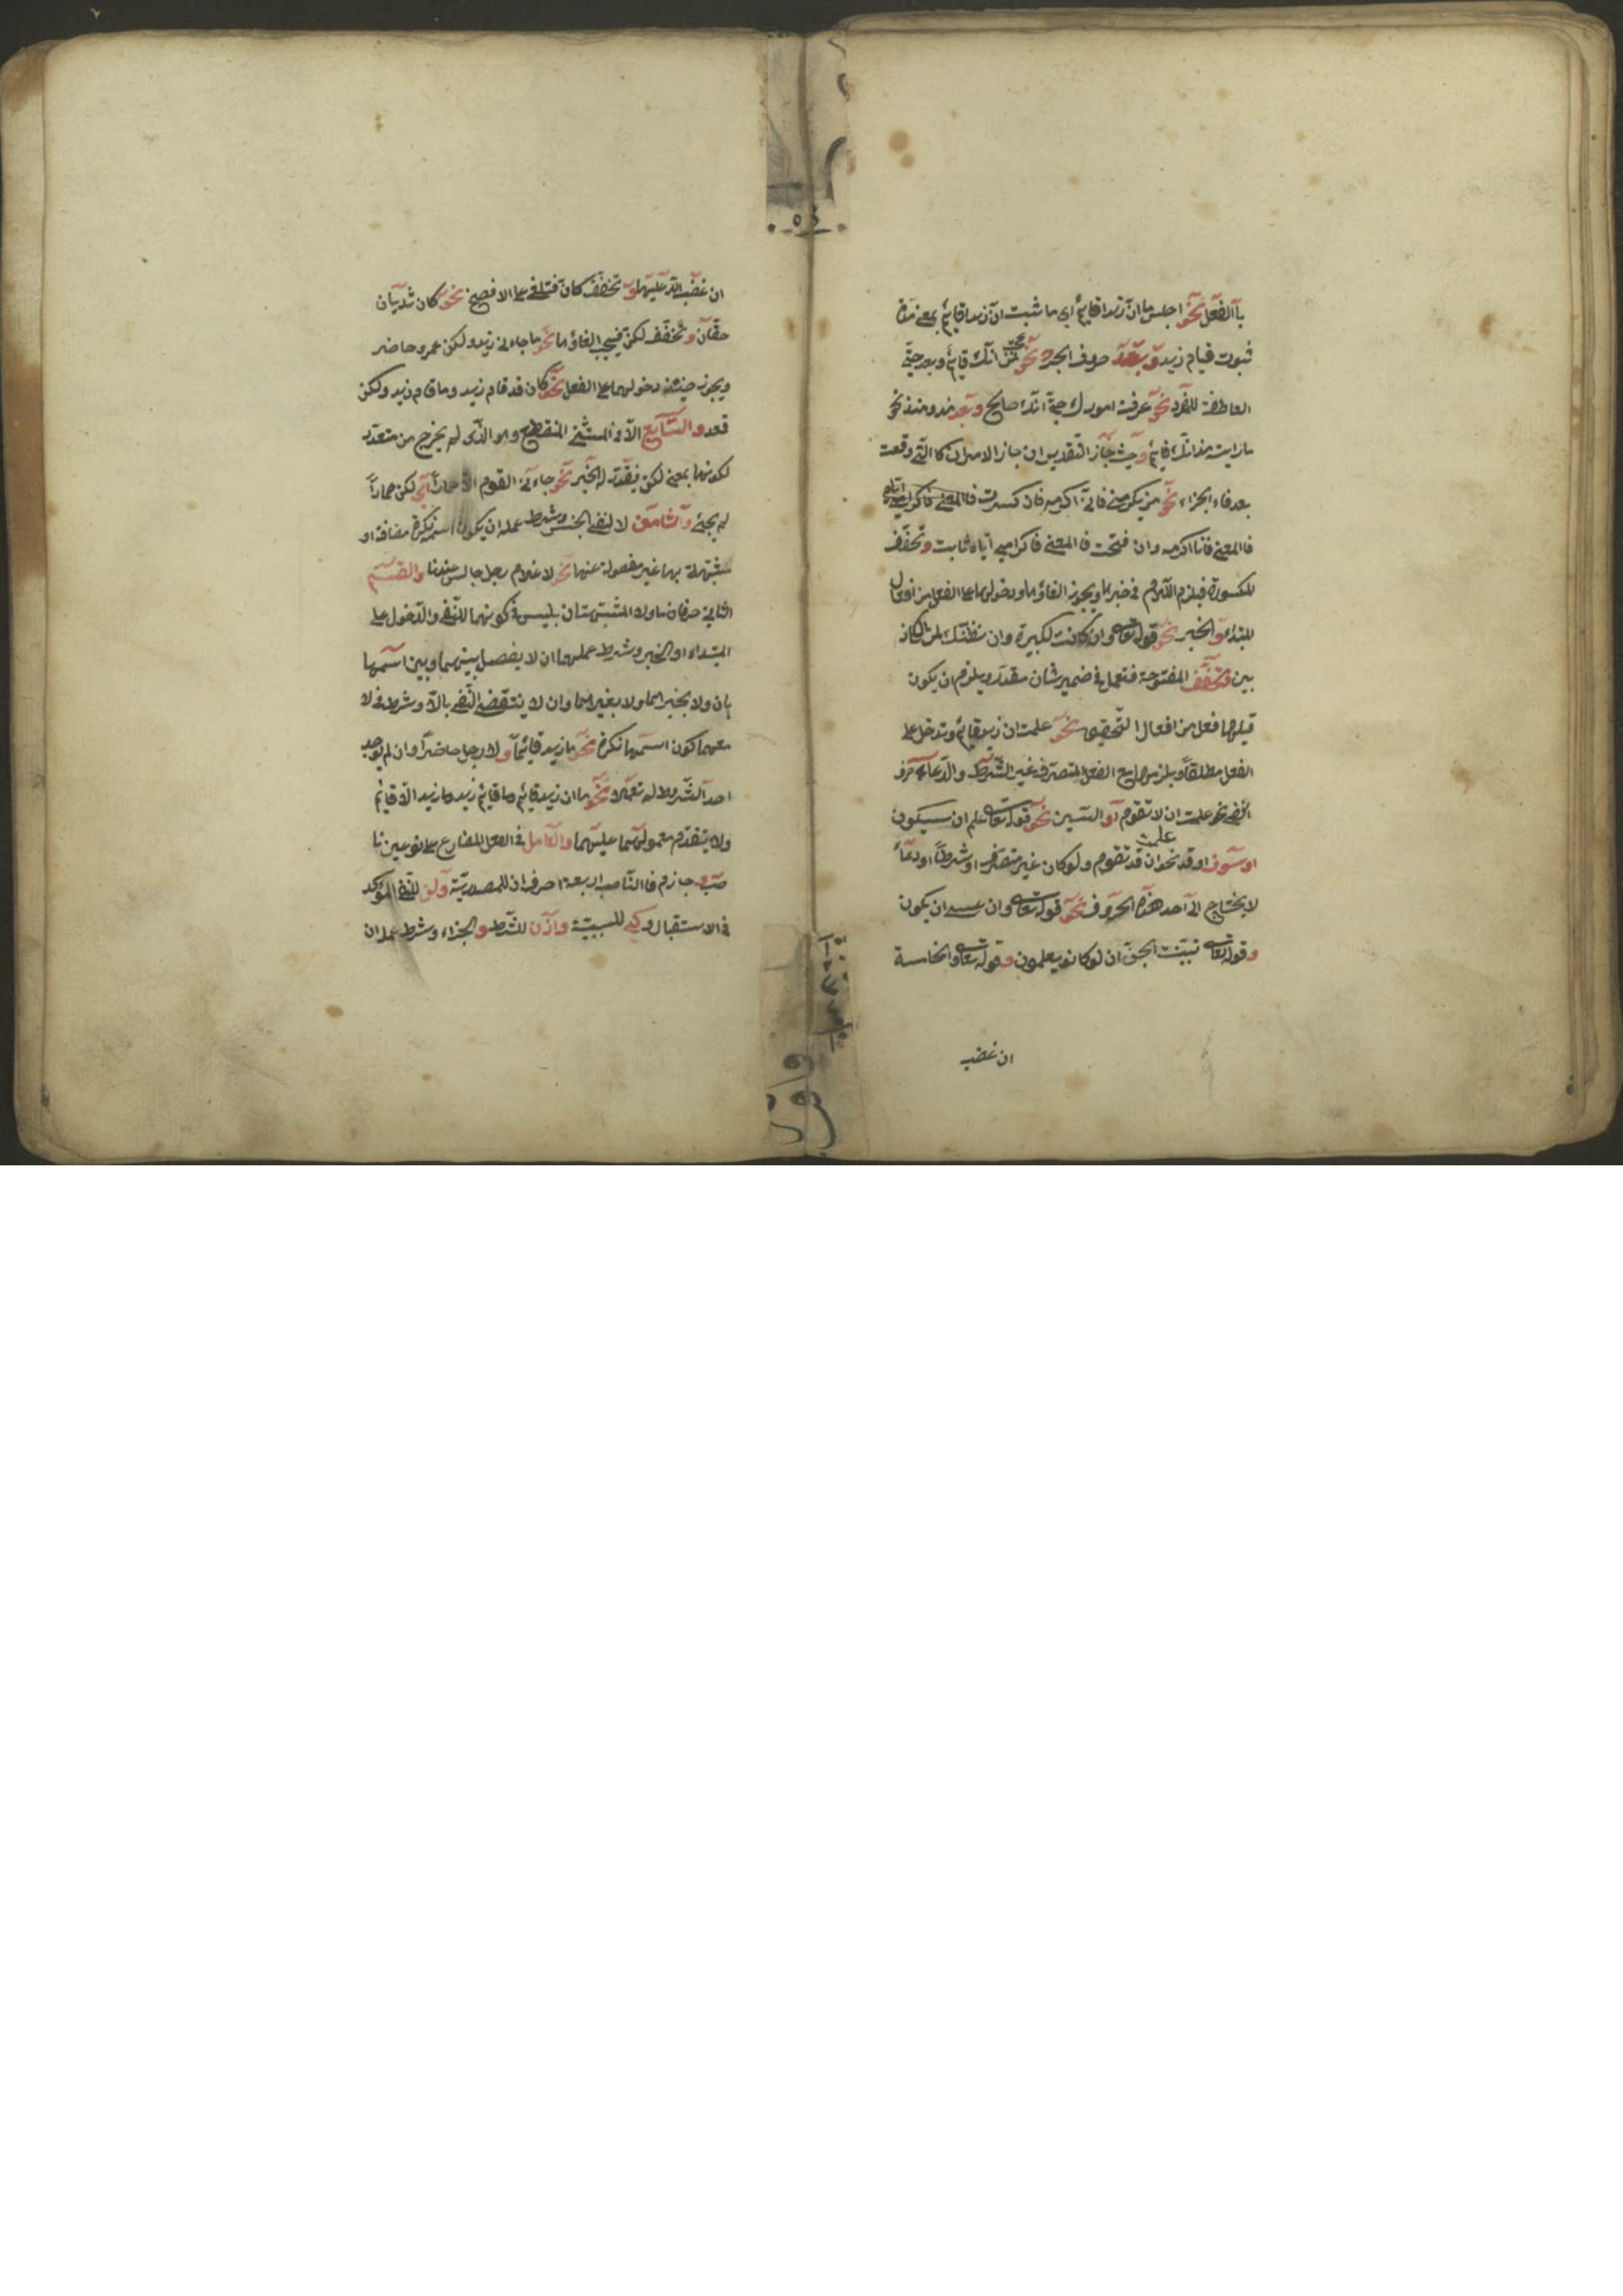 بالفعل نحو اجلس ما ان زيدا قايم أي ما ثبت ان زيدا قايم بمعنى مدة
ثبوت قيام زيد وبعد حروف الجر نحو عجبت من انك قايم وبعد حتى
العاطفة للمفرد نحو عرفت امورك حتى انك صالح وبعد مذ ومنذ نحو
ما رايت مذ انك قايم وحيث جاز التقديران جاز الامران كالتي وقعت
بعد فاء الجزاء نحو من يكرمني فاني اكرمه فان كسرت
فالمعنى فانا اكرمه وان فتحت فالمعنى فاكرامي اياه ثابت وتخفف
المكسورة فيلزم اللام في خبرها ويجوز الغاؤها ودخولها على الفعل من افعال
المبتدا والخبر نحو قوله تعالى وان كانت لكبيرة وان نظنك لمن الكاذ
بين وتخفف المفتوحة فتعمل في ضمير شان مقدر ويلزم ان يكون
قبلها فعل من افعال التحقيق نحو علمت ان زيد قايم وتدخل على
الفعل مطلقا ويلزمها مع الفعل المتصرف غير الشرط والدعاء حرف
النفي نحو علمت ان لا تقوم او السين نحو قوله تعالى علم ان سيكون
او سوف او قد نحو علمت ان قد تقوم ولو كان غير متصرف او شرطا او دعاء
لا يحتاج الى احد هذه الحروف نحو قوله تعالى وان عسى ان يكون
وقوله تعالى تبينت الجن ان لو كانوا يعلمون وقوله تعالى والخامسة
ان غضب
ان غضب الله عليها وتخفف كأن فتلغى على الافصح نحو كان ثدييان
حقان وتخفف لكن فيجب الغاؤها نحو ما جاءني زيد ولكن عمرو حاضر
ويجوز حينئذ دخولهما على الفعل نحو كان قد قام زيد وما قام زيد ولكن
قعد والسابع الا في المستثنى المنقطع وهو الذي لم يخرج من متعدد
لكونها بمعنى لكن فيقدر له الخبر نحو جاءني القوم الا حمارا اي لكن حمارا
لم يجئ والثامن لا لنفي الجنس وشرط عمله ان يكون اسمه نكرة مضافة او
مشبهة بها غير مفصولة عنها نحو لا غلام رجل جالس عندنا والقسم
الثاني حرفان ما ولا المشبهتان بليس في كونهما للنفي والدخول على
المبتداء والخبر وشرط عملهما ان لا يفصل بينهما وبين اسمها
بان ولا بخبرهما ولا بغيرهما وان لا ينتقض النفي بالا وشرط في لا
معهما كون اسمها نكرة نحو ما زيد قائما ولا رجل حاضرا وان لم يوجد
احد الشروط لم تعملا نحو ما ان زيد قايم وما قايم زيد وما زيد الا قايم
ولا يتقدم معمولهما عليهما والعامل في الفعل المضارع على نوعين نا
صب وجازم فالناصب اربعة احرف ان للمصدرية ولن للنفي المؤكد
في الاستقبال وكي للسببية واذن للشرط والجزاء وشرط عمله ان